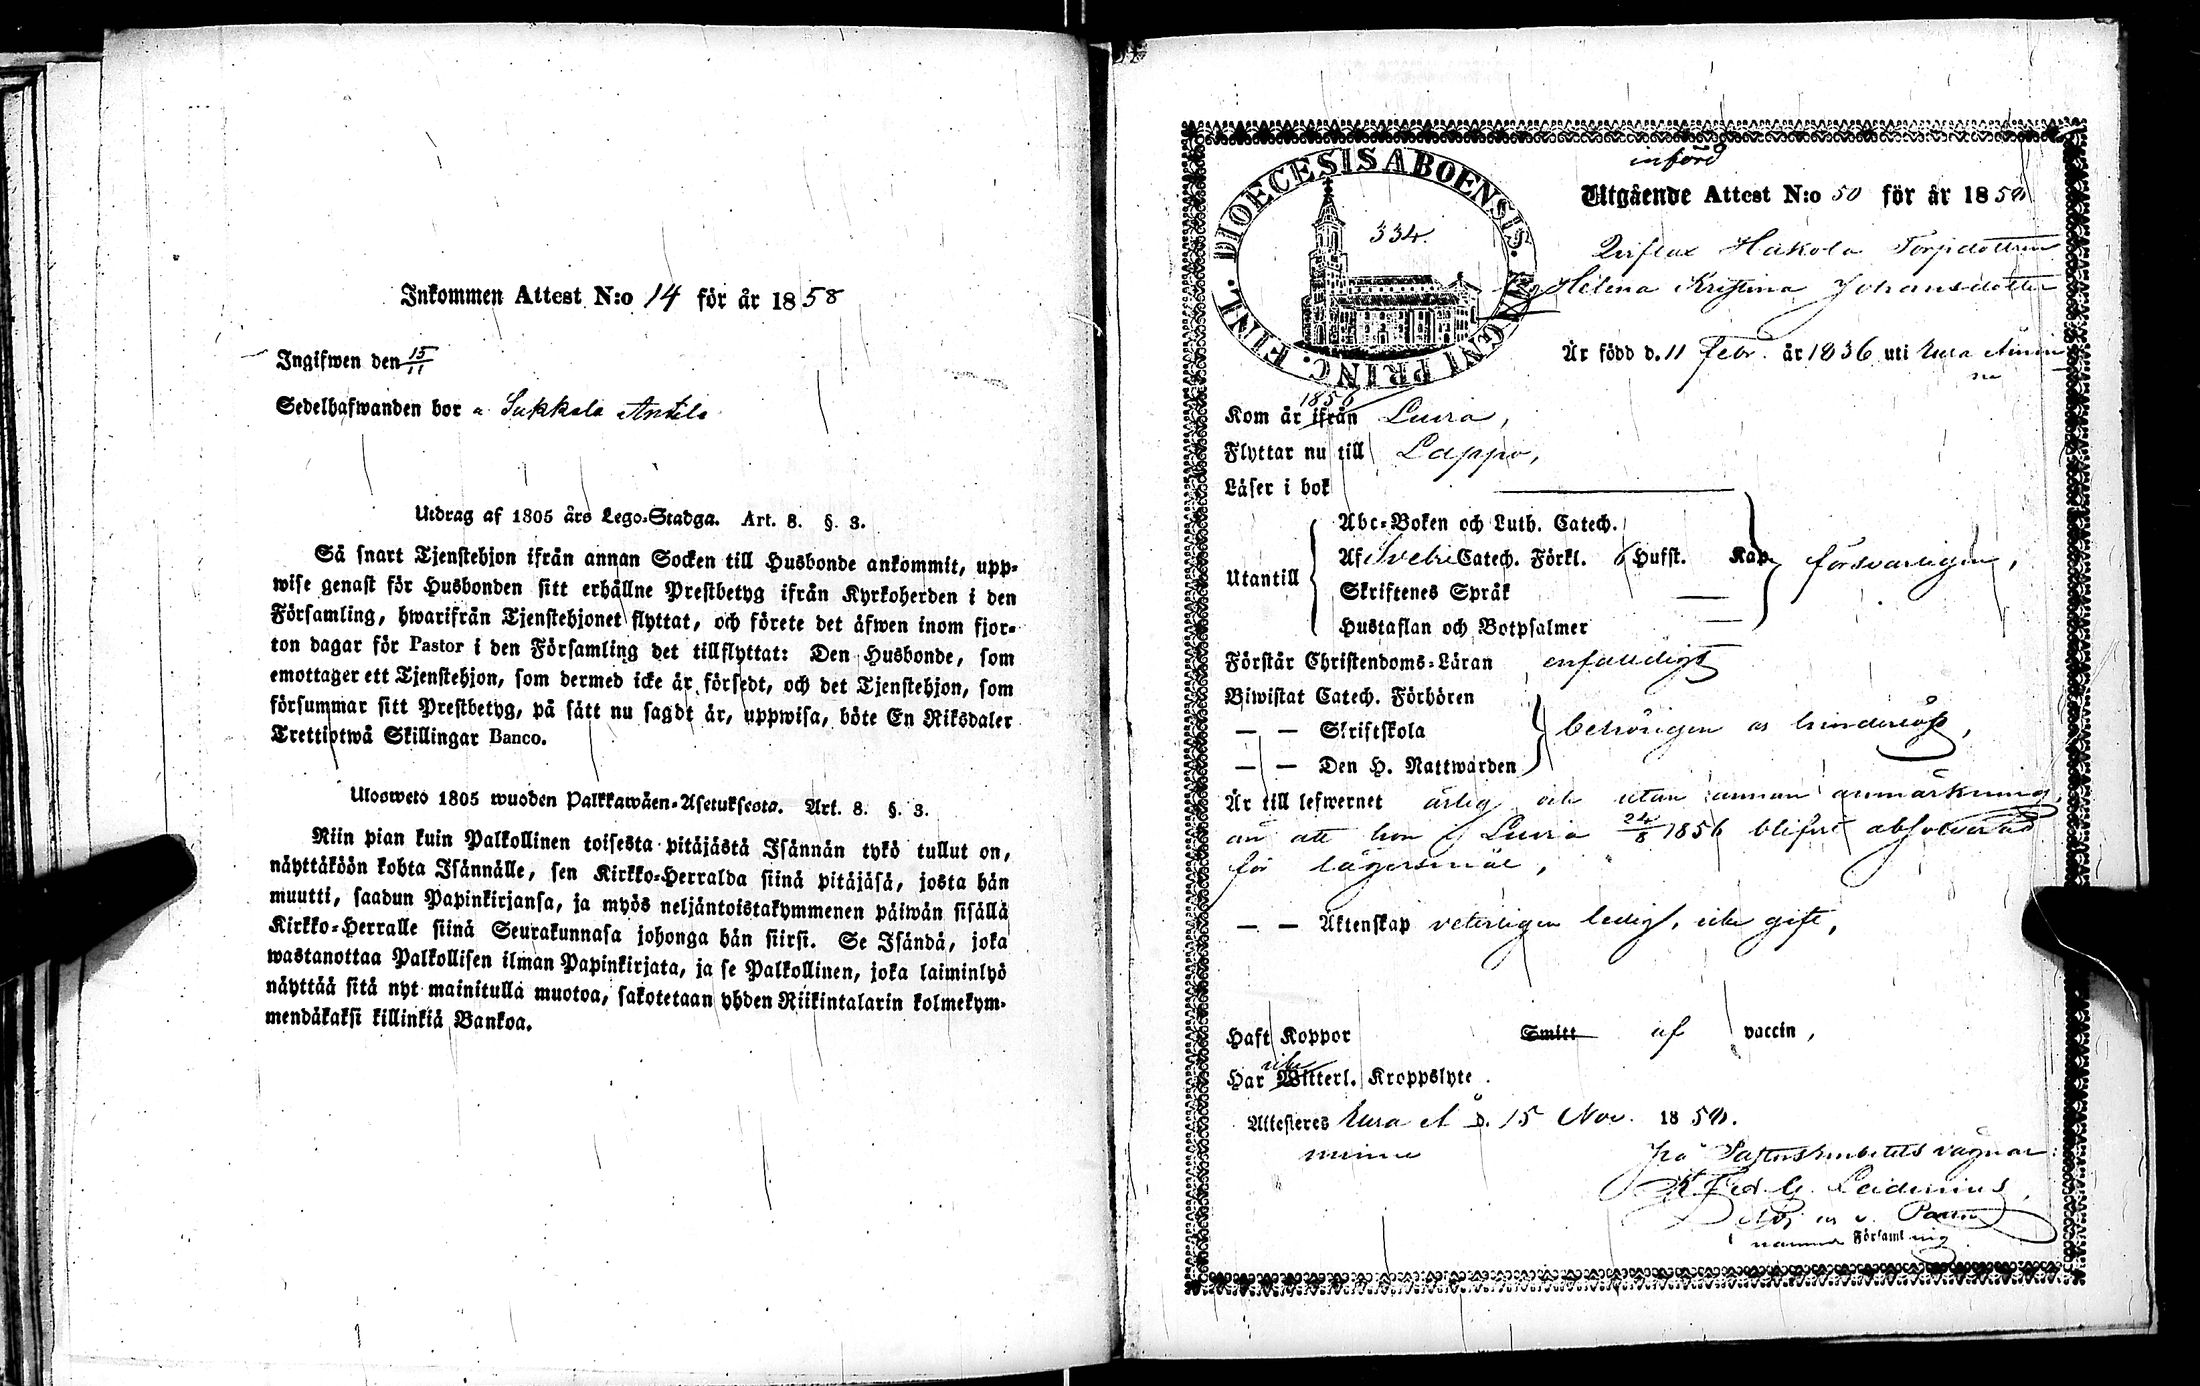 Inkommen Attest N:o 14 för år 1858
Ingifwen den 15/11
Sedelhafwanden bor a Sukkala Anttila
Utdrag af 1805 års Lego-Stadga. Art. 8. §. 3.
Så snart Tjenstehjon ifrån annan Socken till Husbonde ankommit, upp-
wise genast för Husbonden sitt erhållne Prestbetyg ifrån Kyrkoherden i den
Församling, hwarifrån Tjenstehjonet flyttat, och förete det äfwen inom fjor-
ton dagar för Pastor i den Församling det tillflyttat: Den Husbonde, som
emottager ett Tjenstehjon, som dermed icke är försedt, och det Tjenstehjon, som
försummar sitt Prestbetyg, på sätt nu sagdt är, uppwisa, böte En Riksdaler
Trettiotwå Skillingar Banco.
Ulosweto 1805 wuoden Palkkawäen-Asetuksesta. Art. 8. §. 3.
Niin pian kuin Palkollinen toisesta pitäjästä Isännän tykö tullut on,
näyttäköön kohta Isännälle, sen Kirkko-Herralda siinä pitäjäsä, josta hän
muutti, saadun Papinkirjansa, ja myös neljäntoistakymmenen päiwän sisällä
Kirkko-Herralle siinä Seurakunnasa johonga hän siirsi. Se Isändä, joka
wastanottaa Palkollisen ilman Papinkirjata, ja se Palkollinen, joka laiminlyö
näyttää sitä nyt mainitulla muotoa, sakotetaan yhden Riikintalarin kolmekym-
mendäkaksi killinkiä Bankoa.
införd
DIOECESIS ABOENSIS. MAGNI PRINC. FINL.
334.
Utgående Attest N:o 50 för år 1858
Hakola Torpdottren
Helena Kristina Johansdotter
Är född d. 11 Febr. år 1836 uti Eura Åmin
ne
1856
Kom år ifrån Luvia,
Flyttar nu till Lappo,
Läser i bok
Utantill
Abc-Boken och Luth. Catech.
Af Svebi Catech. Förkl. 6 Hufst. Kap. försvarligen,
Skriftenes Språk
Hustaflan och Botpsalmer
Förstår Christendoms-Läran enfaldigt
Biwistat Catech. Förhören
— — Skriftskola behörigen o hinderlöst,
— — Den H. Nattwarden
Är till lefwernet ärlig och utan annan anmärkning,
än att hon i Luvia 24/8 1856 blifvit absolverad
för lägersmål,
— — Äktenskap veterligen ledig, icke gift,
Haft Koppor Smitt af vaccin,
icke
Har Witterl. Kroppslyte.
Attesteres Eura Å d. 15 Nov. 1858.
minne
På Pastorsembetets vägnar:
K. Fred. G. Leidenius,
Adj. o v. Pastor
i namnde Församling